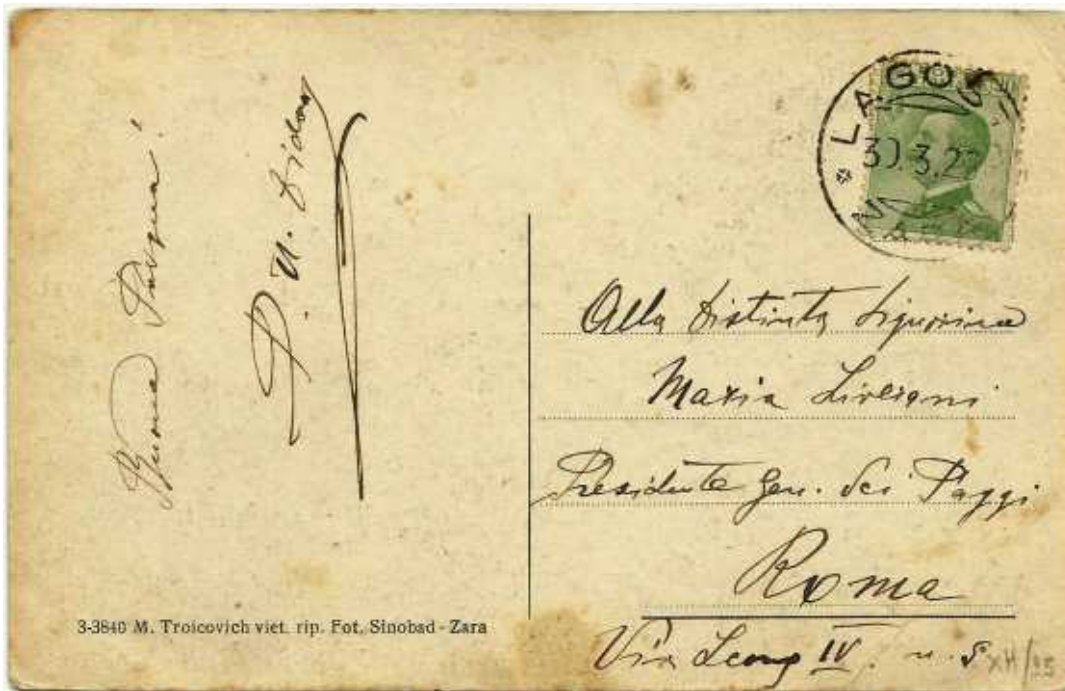 Buona Pasqua!
P. U.
LAGOS
30.3.2
ZARA
Alla Distinta Signorina
Maria
Presidente Gen. dei Paggi
Roma
Via Leone IV. n. 5
XH/
3-3840 M. Troicovich viet. rip. Fot. Sinobad - Zara